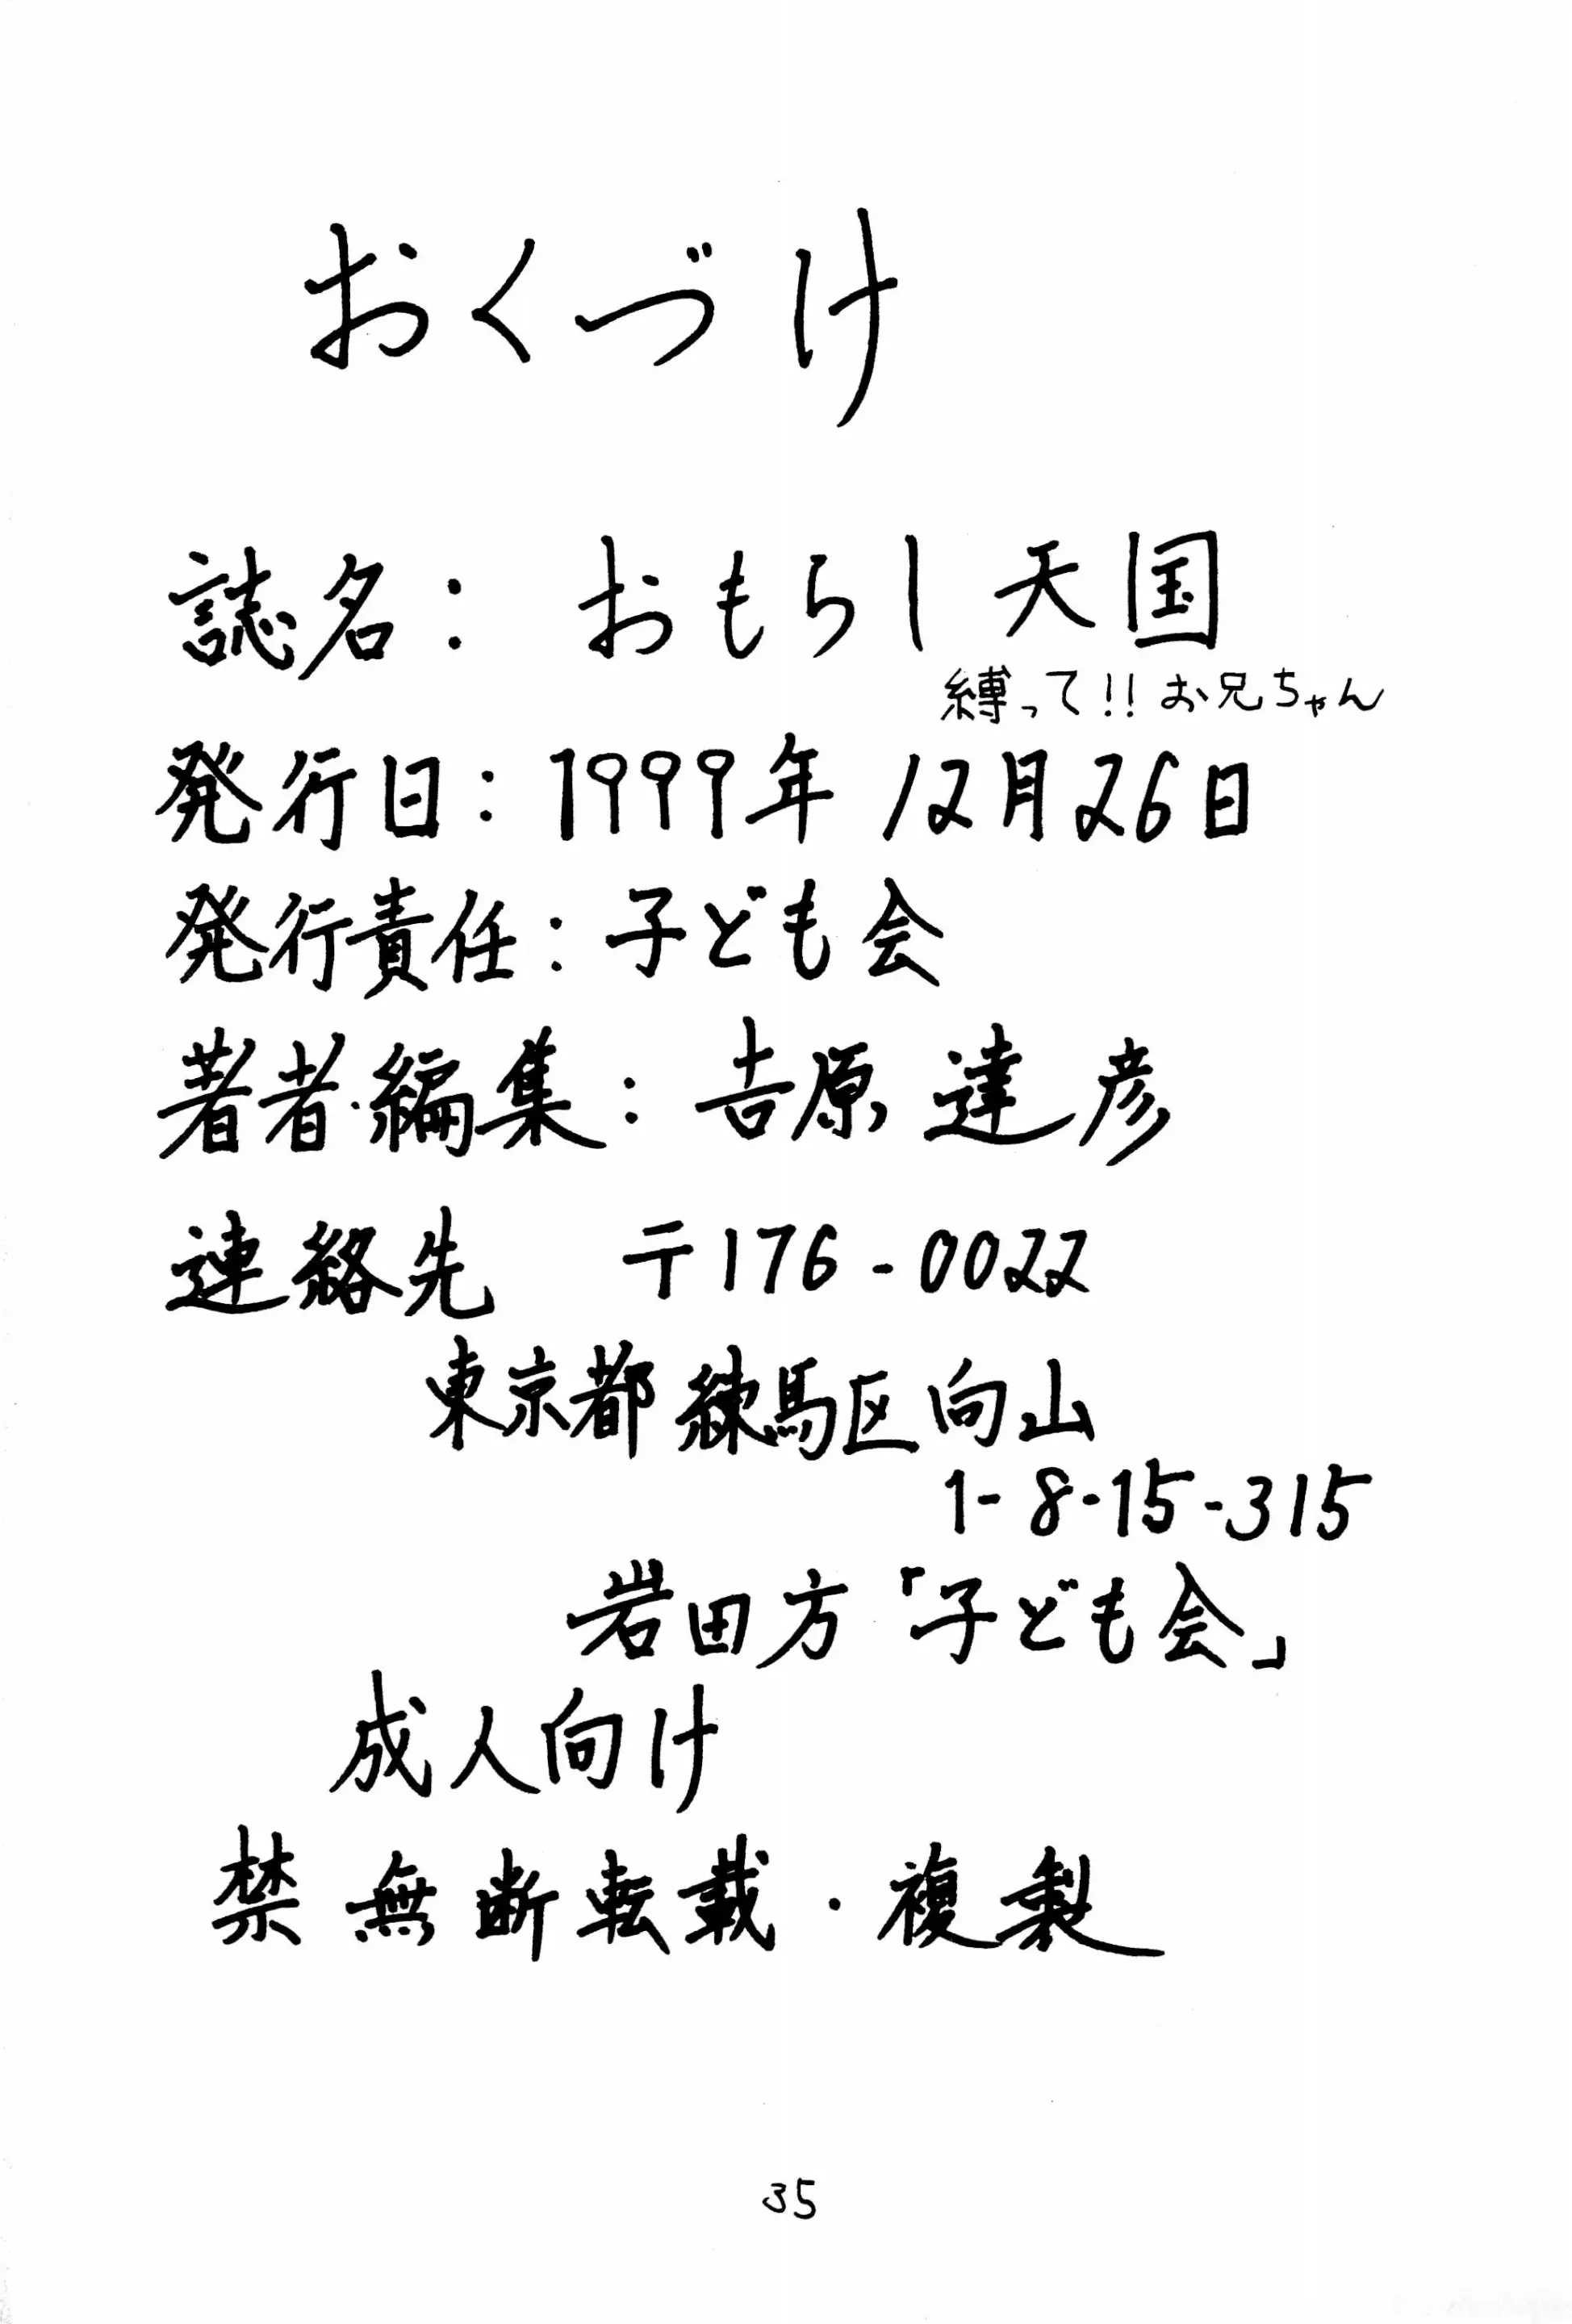 おくづけ
誌名: おもらし天国
縛って!! お兄ちゃん
発行日: 1999年 12月26日
発行責任: 子ども会
著者・編集: 吉原 達彦
連絡先 〒176-0022
東京都練馬区向山
1-8-15-315
岩田方「子ども会」
成人向け
禁無断転載・複製
35